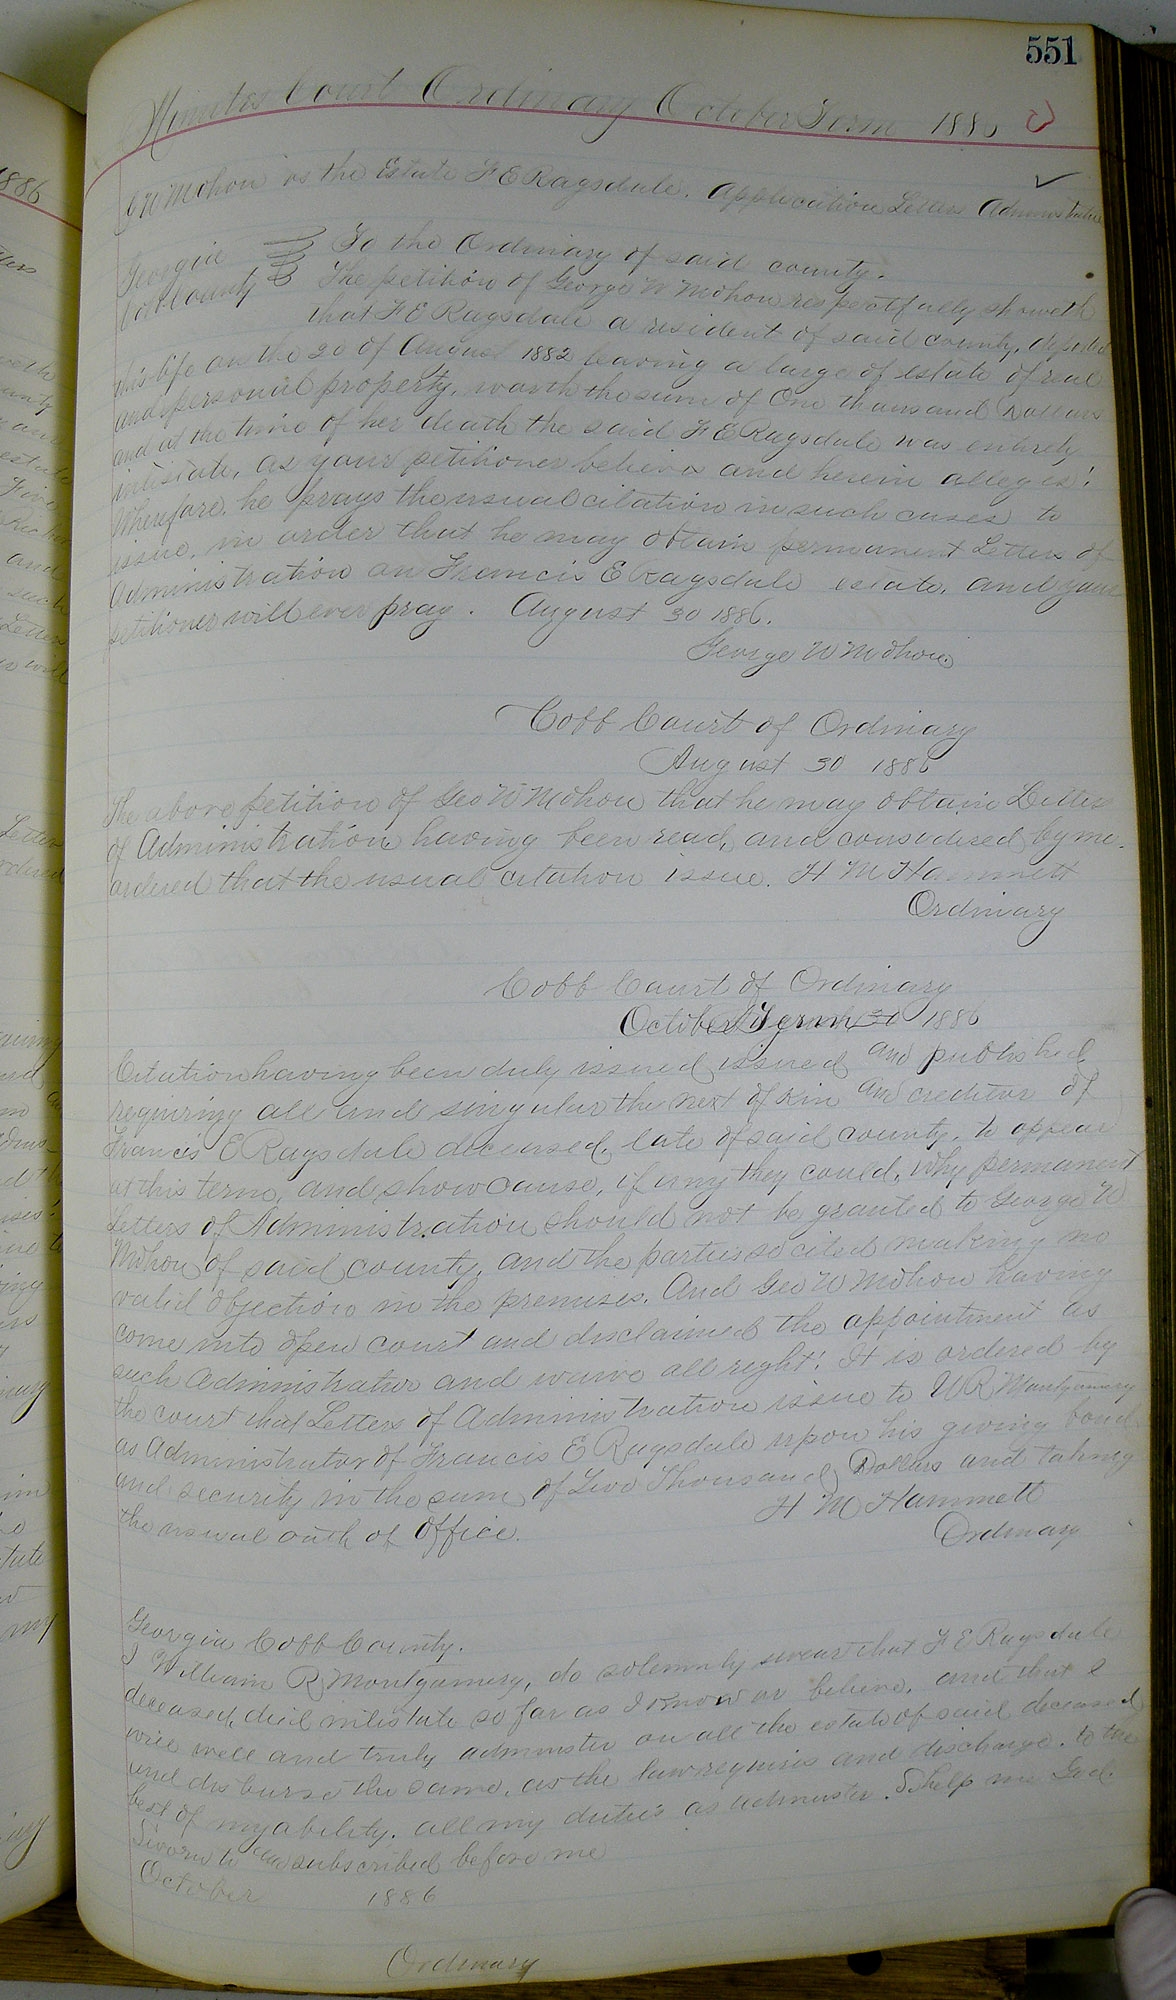 551
Minutes Court Ordinary October Term 1886
G W Mohon vs the Estate F E Ragsdale. Application Letters Administration
Georgia To the Ordinary of said county.
Cobb County The petition of George W Mohon respectfully showeth
that F E Ragsdale a resident of said county, departed
this life on the 20 of August 1882 leaving a large of estate of real
and personal property, worth the sum of One thousand Dollars
and at the time of her death the said F E Ragsdale was entirely
intestate, as your petitioner believes and herein alleges!
Wherefore, he prays the usual citation in such cases to
issue, in order that he may obtain permanent Letters of
Administration on Francis E Ragsdale estate, and your
petitioner will ever pray. August 30 1886.
George W Mohon
Cobb Court of Ordinary
August 30 1886
The above petition of Geo W Mohon that he may obtain Letters
of Administration having been read, and considered by me.
ordered that the usual citation issue. H M Hammett
Ordinary
Cobb Court of Ordinary
October Term 1886
Citation having been duly issued issued and published
requiring all and singular the next of kin and creditors of
Francis E Ragsdale deceased, late of said county, to appear
at this term, and show cause, if any they could, Why permanent
Letters of Administration should not be granted to George W
Mohon of said county, and the parties so cited making no
valid objection in the premises. And Geo W Mohon having
come into open court and disclaimed the appointment as
such Administrator and waive all right! It is ordered by
the court that Letters of Administration issue to W R Montgomery
as Administrator of Francis E Ragsdale upon his giving bond
and security in the sum of Two Thousand Dollars and taking
the usual oath of office. H M Hammett
Ordinary
Georgia Cobb County.
I William R Montgomery, do solemnly swear that F E Ragsdale
deceased, died intestate so far as I know or believe, and that I
will well and truly administer on all the estate of said deceased
and disburse the same, as the law requires and discharge, to the
best of my ability, all my duties as So help me God.
Sworn to and subscribed before me
October 1886
Ordinary